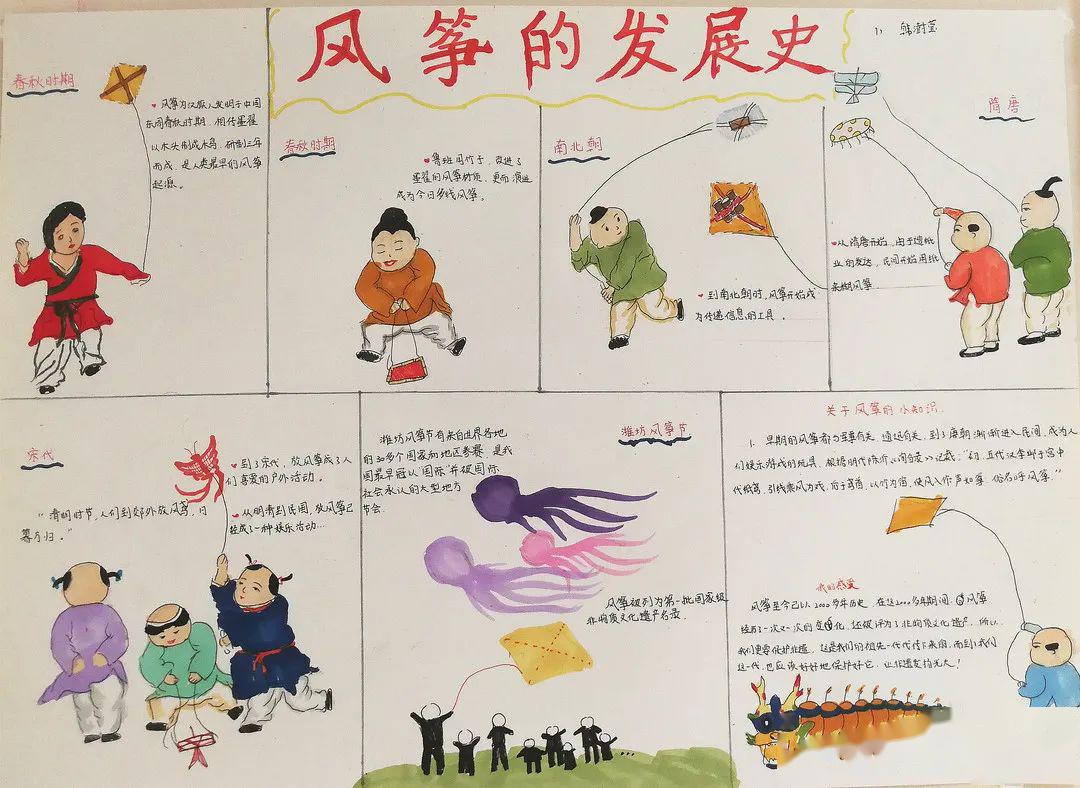 风筝的发展史
1、韩澍莹
春秋时期
风筝为汉族人发明于中国
东周春秋时期，相传墨翟
以木头制成木鸟，研制三年
而成，是人类最早的风筝
起源。
春秋时期
鲁班用竹子，改进了
墨翟的风筝材质，更而演进
成为今日多线风筝。
南北朝
到南北朝时，风筝开始成
为传递信息的工具。
隋唐
从隋唐开始，由于造纸
业的发达，民间开始用纸
来糊风筝
宋代
到了宋代，放风筝成了人
们喜爱的户外活动。
"清明时节，人们到郊外放风鸢，日
暮方归。"
从明清到民国，放风筝已
经成了一种娱乐活动…
潍坊风筝节
潍坊风筝节有来自世界各地
的30多个国家和地区参赛，是我
国最早冠以"国际"并被国际
社会承认的大型地方
节会
风筝被列为第一批国家级
非物质文化遗产名录。
关于风筝的小知识
1、早期的风筝都与军事有关，通迅有关，到了唐朝渐渐进入民间，成为人
们娱乐游戏的玩具，根据明代陈沂《询刍录》记载："初，五代汉李邺于宫中
代纸鸢，引线乘风为戏，后于鸢首，以竹为笛，使风入作声如筝，俗名呼风筝。"
我的感受
风筝至今已以2000多年历史，在这2000多年期间，风筝
经历了一次又一次的变化，还被评为了非物质文化遗产，所以，
我们更要保护非遗，这是我们的祖先一代代传下来的，而到了我们
这一代，也应该好好地保护好它，让非遗发扬光大！